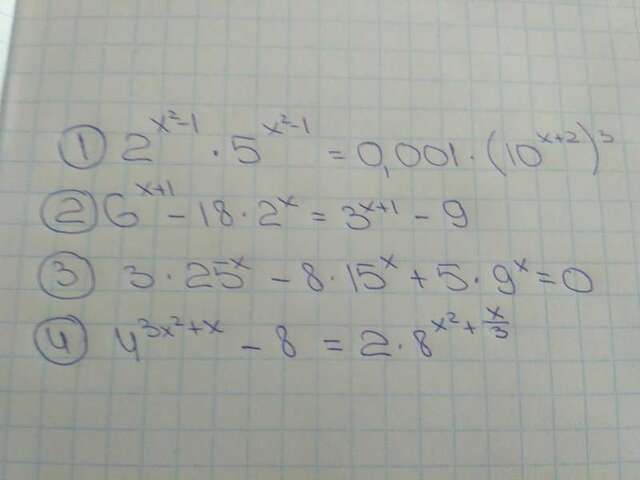 ① 2^(x²-1) · 5^(x²-1) = 0,001 · (10^(x+2))³
② 6^(x+1) - 18 · 2^x = 3^(x+1) - 9
③ 3 · 25^x - 8 · 15^x + 5 · 9^x = 0
④ 4^(3x²+x) - 8 = 2 · 8^(x²+x/3)